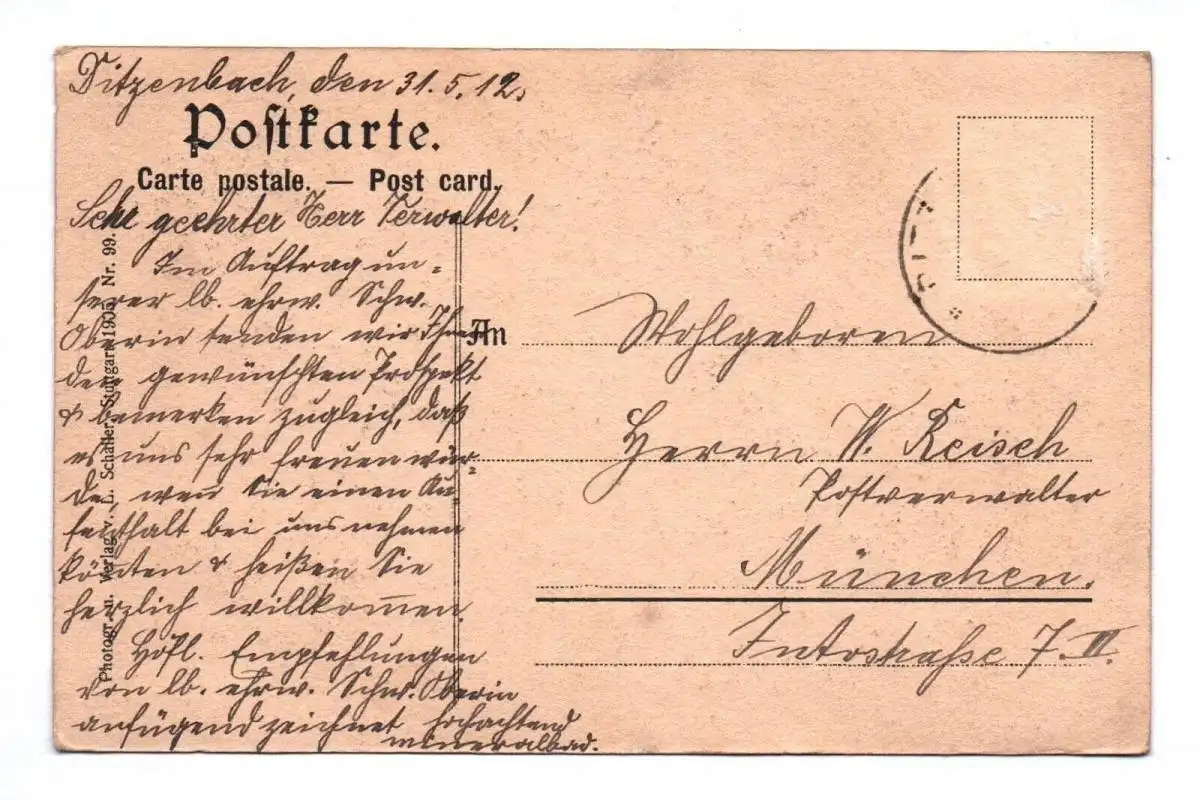 Ditzenbach, den 31.5.12.
Postkarte.
Carte postale. — Post card.
Sehr geehrter Herr Verwalter!
Im Auftrag un-
serer lb. ehrw. Schw.
Oberin senden wir Ihnen
den gewünschten Prospekt
& bemerken zugleich, daß
es uns sehr freuen wür-
de, wen Sie einen Au-
fenthalt bei uns nehmen
könnten & heißen Sie
herzlich willkom̅en.
Höfl. Empfehlungen
von lb. ehrw. Schw. Oberin
anfügend zeichnet hochachtend
mineralbad.
Photogr. u. Verlag v. L. Schaller, Stuttgart 1905. Nr. 99.
An
Wohlgeboren
Herrn W. Reisch
Postverwalter
München.
7. III.
DITZ